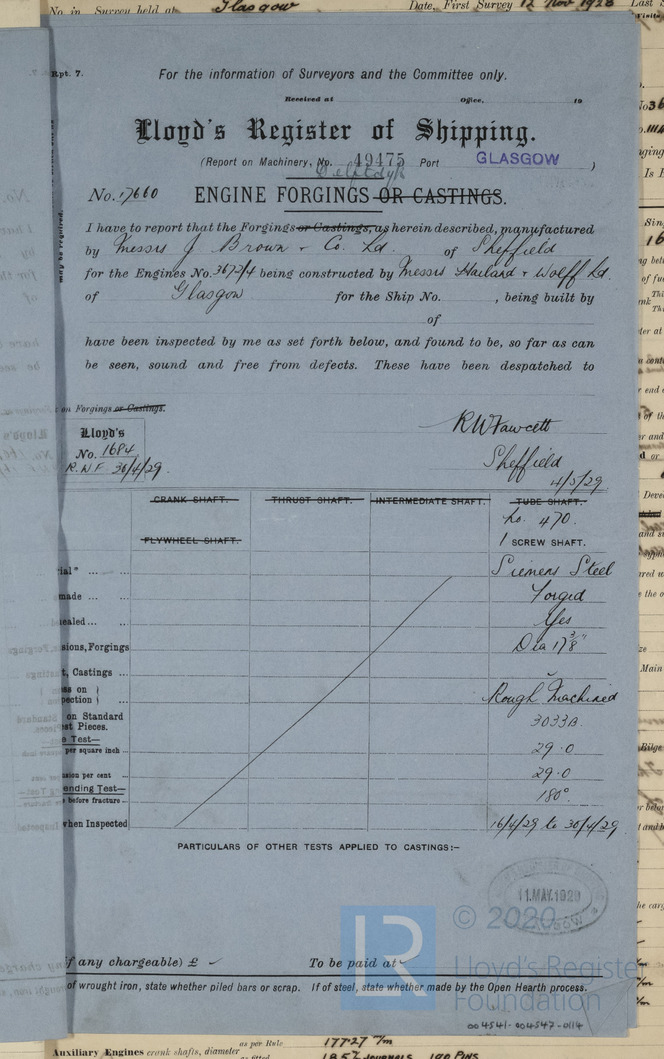 No. in Survey held at Glasgow Date, First Survey 12 Nov 1928 Last S
Rpt. 7.
For the information of Surveyors and the Committee only.
Received at Office, 19
Lloyd's Register of Shipping.
(Report on Machinery, No. 49475 Port GLASGOW )
Delftdyk
No. 17660 ENGINE FORGINGS OR CASTINGS.
I have to report that the Forgings or Castings, as herein described, manufactured
by Messrs J Brown & Co. Ld. of Sheffield
for the Engines No. 3673/4 being constructed by Messrs Harland & Wolff Ld.
of Glasgow for the Ship No. , being built by
of
have been inspected by me as set forth below, and found to be, so far as can
be seen, sound and free from defects. These have been despatched to
on Forgings or Castings.
RW Fawcett
Lloyd's
No. 1684
R.W.F. 30/4/29.
Sheffield
4/5/29
CRANK SHAFT. THRUST SHAFT. INTERMEDIATE SHAFT. TUBE SHAFT.
No. 470.
FLYWHEEL SHAFT. 1 SCREW SHAFT.
ial" ... ... Siemens Steel
made ... ... Forged
ealed ... ... Yes
sions, Forgings Dia 17 3/8"
t, Castings ...
ss on
pection Rough Machined
on Standard
st Pieces. 3033B.
e Test—
per square inch ... 29.0
nsion per cent ... 29.0
ending Test—
before fracture ... 180°.
when Inspected 16/4/29 to 30/4/29
PARTICULARS OF OTHER TESTS APPLIED TO CASTINGS:-
11.MAY.1929
© 2020
LR
Lloyd's Register
Foundation
f any chargeable) £ To be paid at
of wrought iron, state whether piled bars or scrap. If of steel, state whether made by the Open Hearth process.
004541-004547-0114
Auxiliary Engines crank shafts, diameter as per Rule 177.27 m/m
as fitted 185 JOURNALS 190 PINS